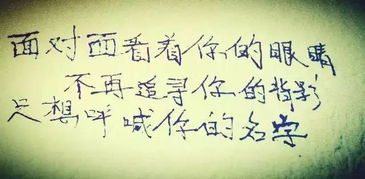 面对面看着你的眼睛
不再追寻你的背影
只想呼喊你的名字